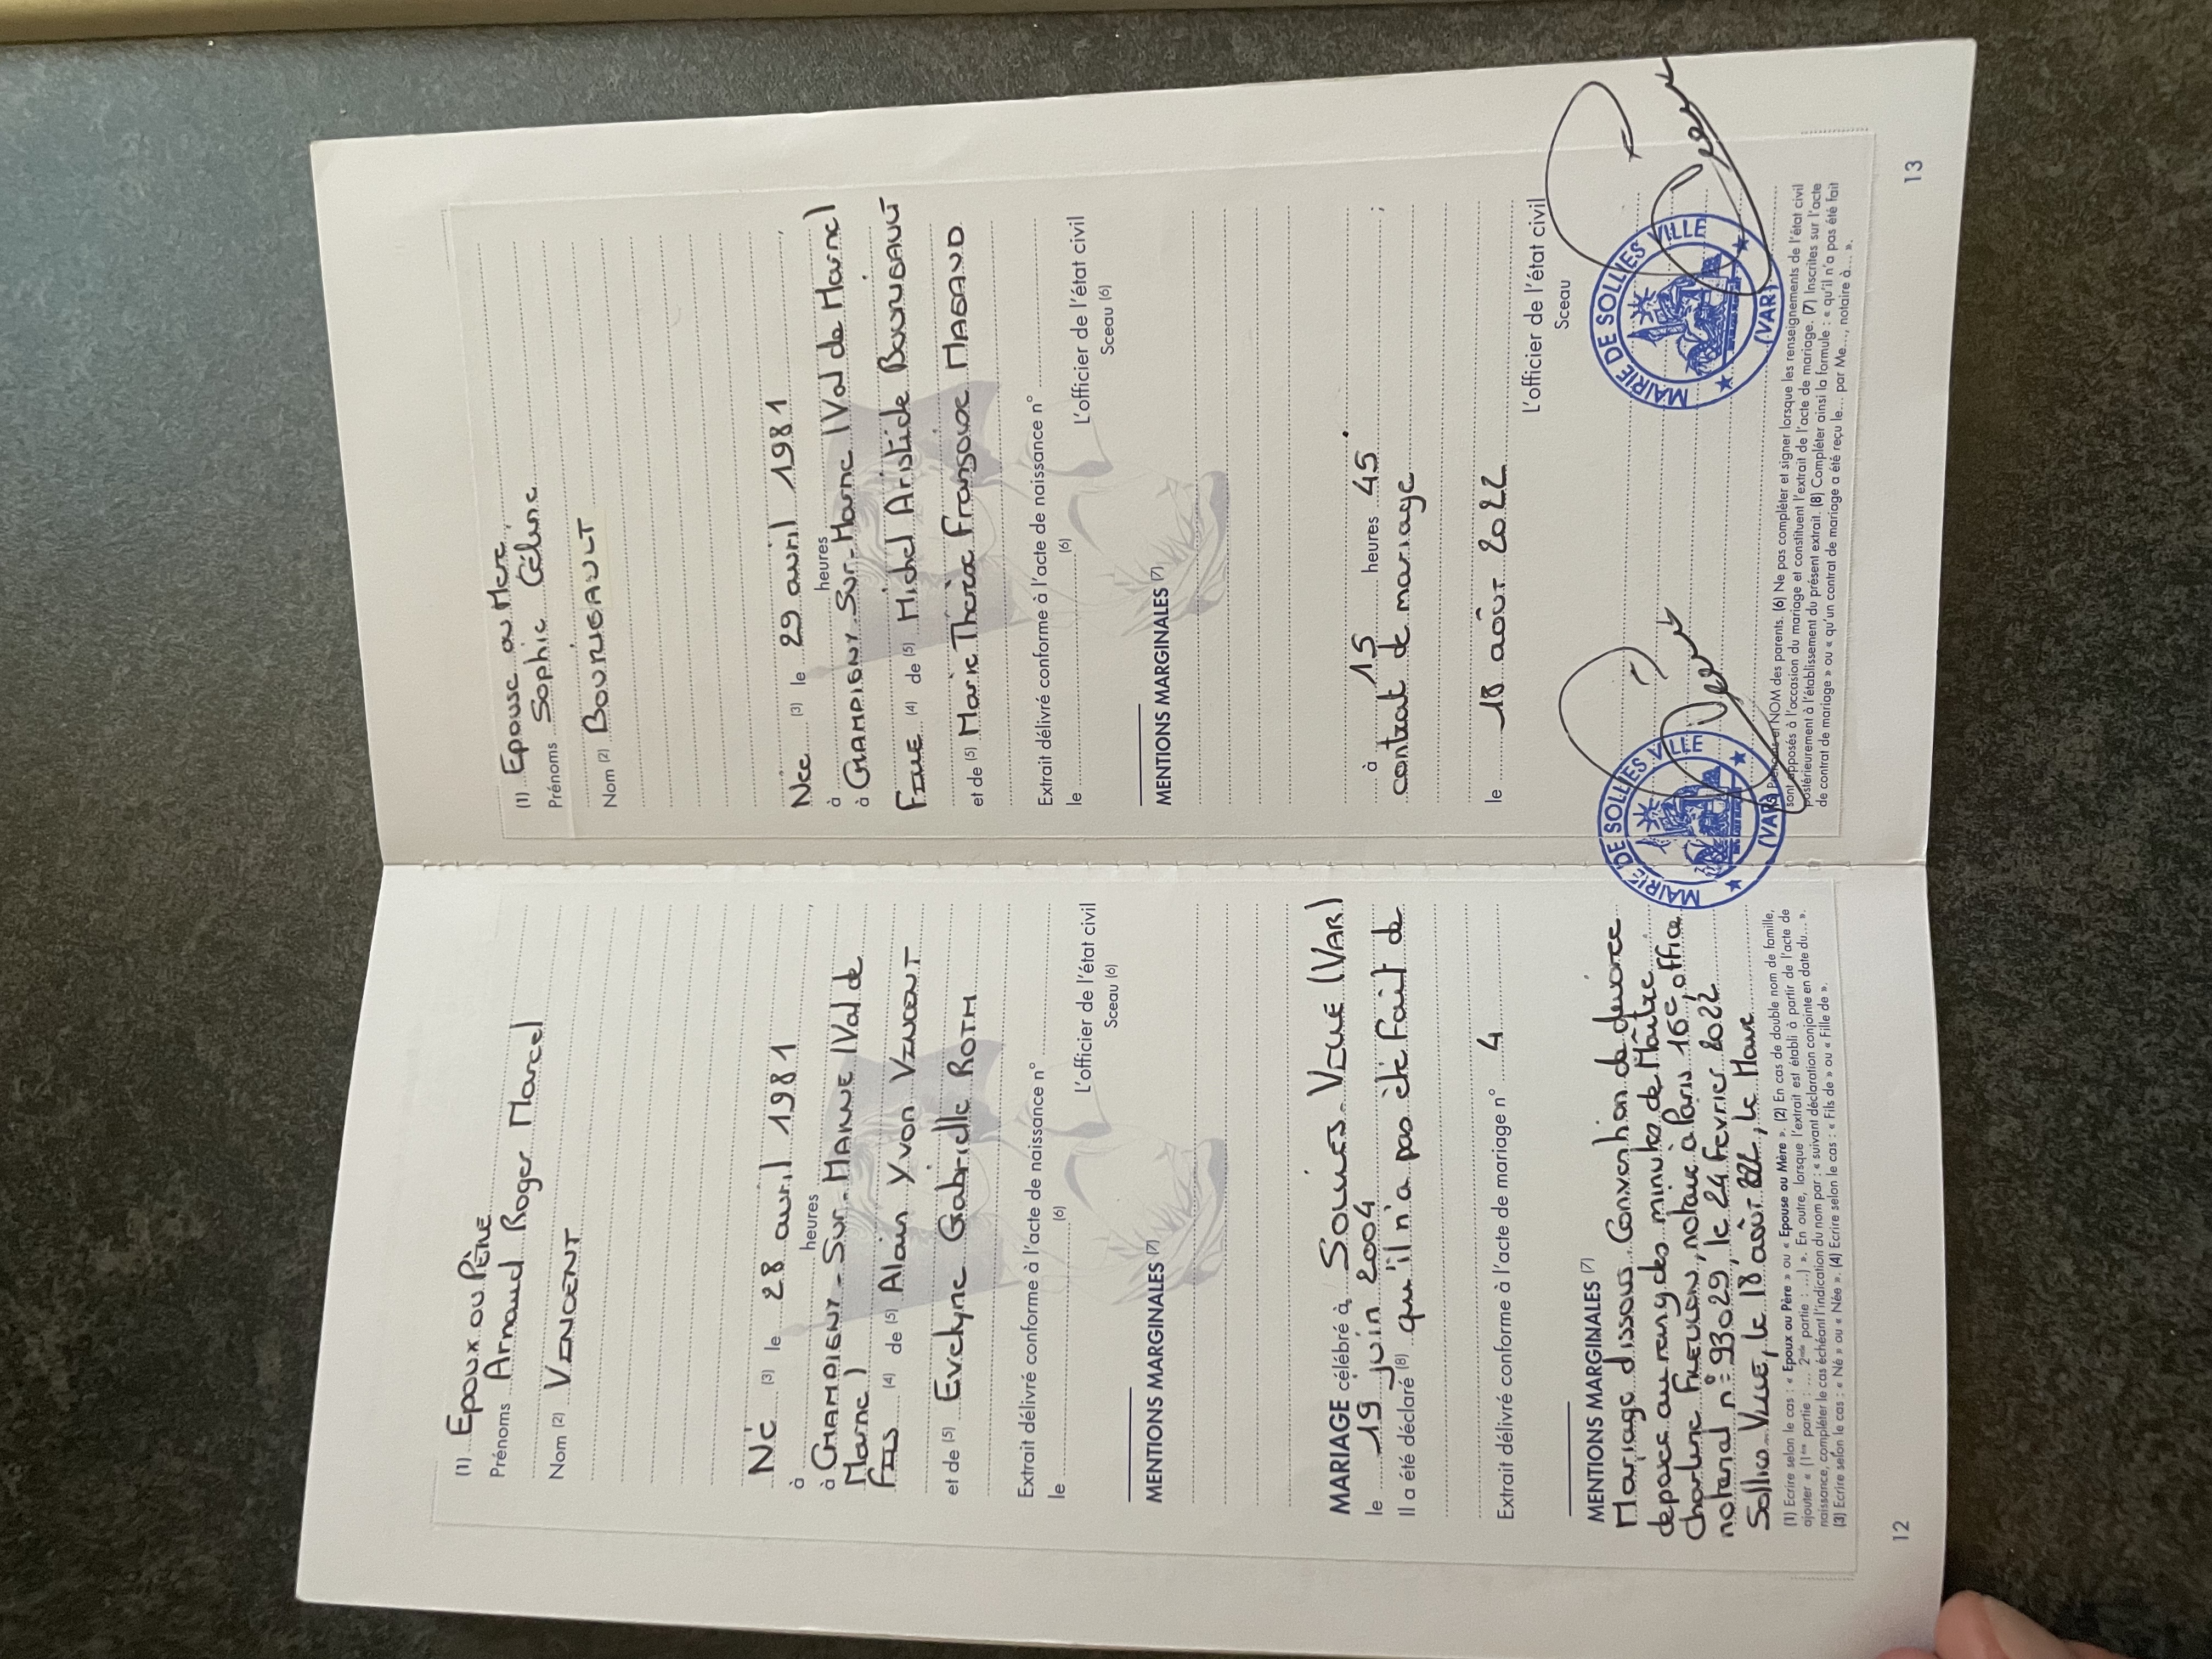 (1) Epoux ou Père
Prénoms Arnaud Roger Marcel
Nom (2) VINCENT
Né (3) le 28 avril 1981
à heures
à CHAMPIGNY-Sur-MARNE (Val de
Marne)
Fils (4) de (5) Alain Yvon VINCENT
et de (5) Evelyne Gabrielle ROTH
Extrait délivré conforme à l'acte de naissance n°
le (6)
L'officier de l'état civil
Sceau (6)
MENTIONS MARGINALES (7)
MARIAGE célébré à SOLLIES-VILLE (VAR)
le 19 juin 2004
Il a été déclaré (8) qu'il n'a pas été fait de
Extrait délivré conforme à l'acte de mariage n° 4
MENTIONS MARGINALES (7)
Mariage dissous Convention de divorce
déposée au rang des minutes de Maître
Charlene, notaire à Paris 16e, office
notarial n° 93029, le 24 Fevrier 2022
Sollies VILLE, le 18 août 2022, Le Maire
(1) Ecrire selon le cas : « Epoux ou Père » ou « Epouse ou Mère ». (2) En cas de double nom de famille,
ajouter « (1ère partie : ... 2nde partie : ...) ». En outre, lorsque l'extrait est établi à partir de l'acte de
naissance, compléter le cas échéant l'indication du nom par : « suivant déclaration conjointe en date du... ».
(3) Ecrire selon le cas : « Né » ou « Née ». (4) Ecrire selon le cas : « Fils de » ou « Fille de ».
12
(1) Epouse ou Mere
Prénoms Sophie Céline
Nom (2) BOURIGAULT
Née (3) le 29 avril 1981
à heures
à CHAMPIGNY-Sur-Marne (Val de Marne)
FILLE (4) de (5) Michel Aristide BOURIGAULT
et de (5) Marie Thérèse Françoise MAGAUD
Extrait délivré conforme à l'acte de naissance n°
le (6)
L'officier de l'état civil
Sceau (6)
MENTIONS MARGINALES (7)
à 15 heures 45 ;
contrat de mariage
le 18 août 2022
L'officier de l'état civil
Sceau
MAIRIE DE SOLLIES VILLE
(VAR)
MAIRIE DE SOLLIES VILLE
(VAR)
(5) Prénoms et NOM des parents. (6) Ne pas compléter et signer lorsque les renseignements de l'état civil
sont apposés à l'occasion du mariage et constituent l'extrait de l'acte de mariage. (7) Inscrites sur l'acte
postérieurement à l'établissement du présent extrait. (8) Compléter ainsi la formule : « qu'il n'a pas été fait
de contrat de mariage » ou « qu'un contrat de mariage a été reçu le... par Me..., notaire à... ».
13